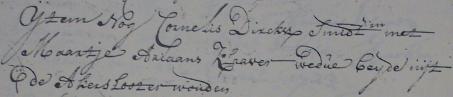 Ijtem Nog Cornelis Dirckx Smidt in met
Maartje Ariaans Kraver wedue beyde uijt
de Akerslooter wouden